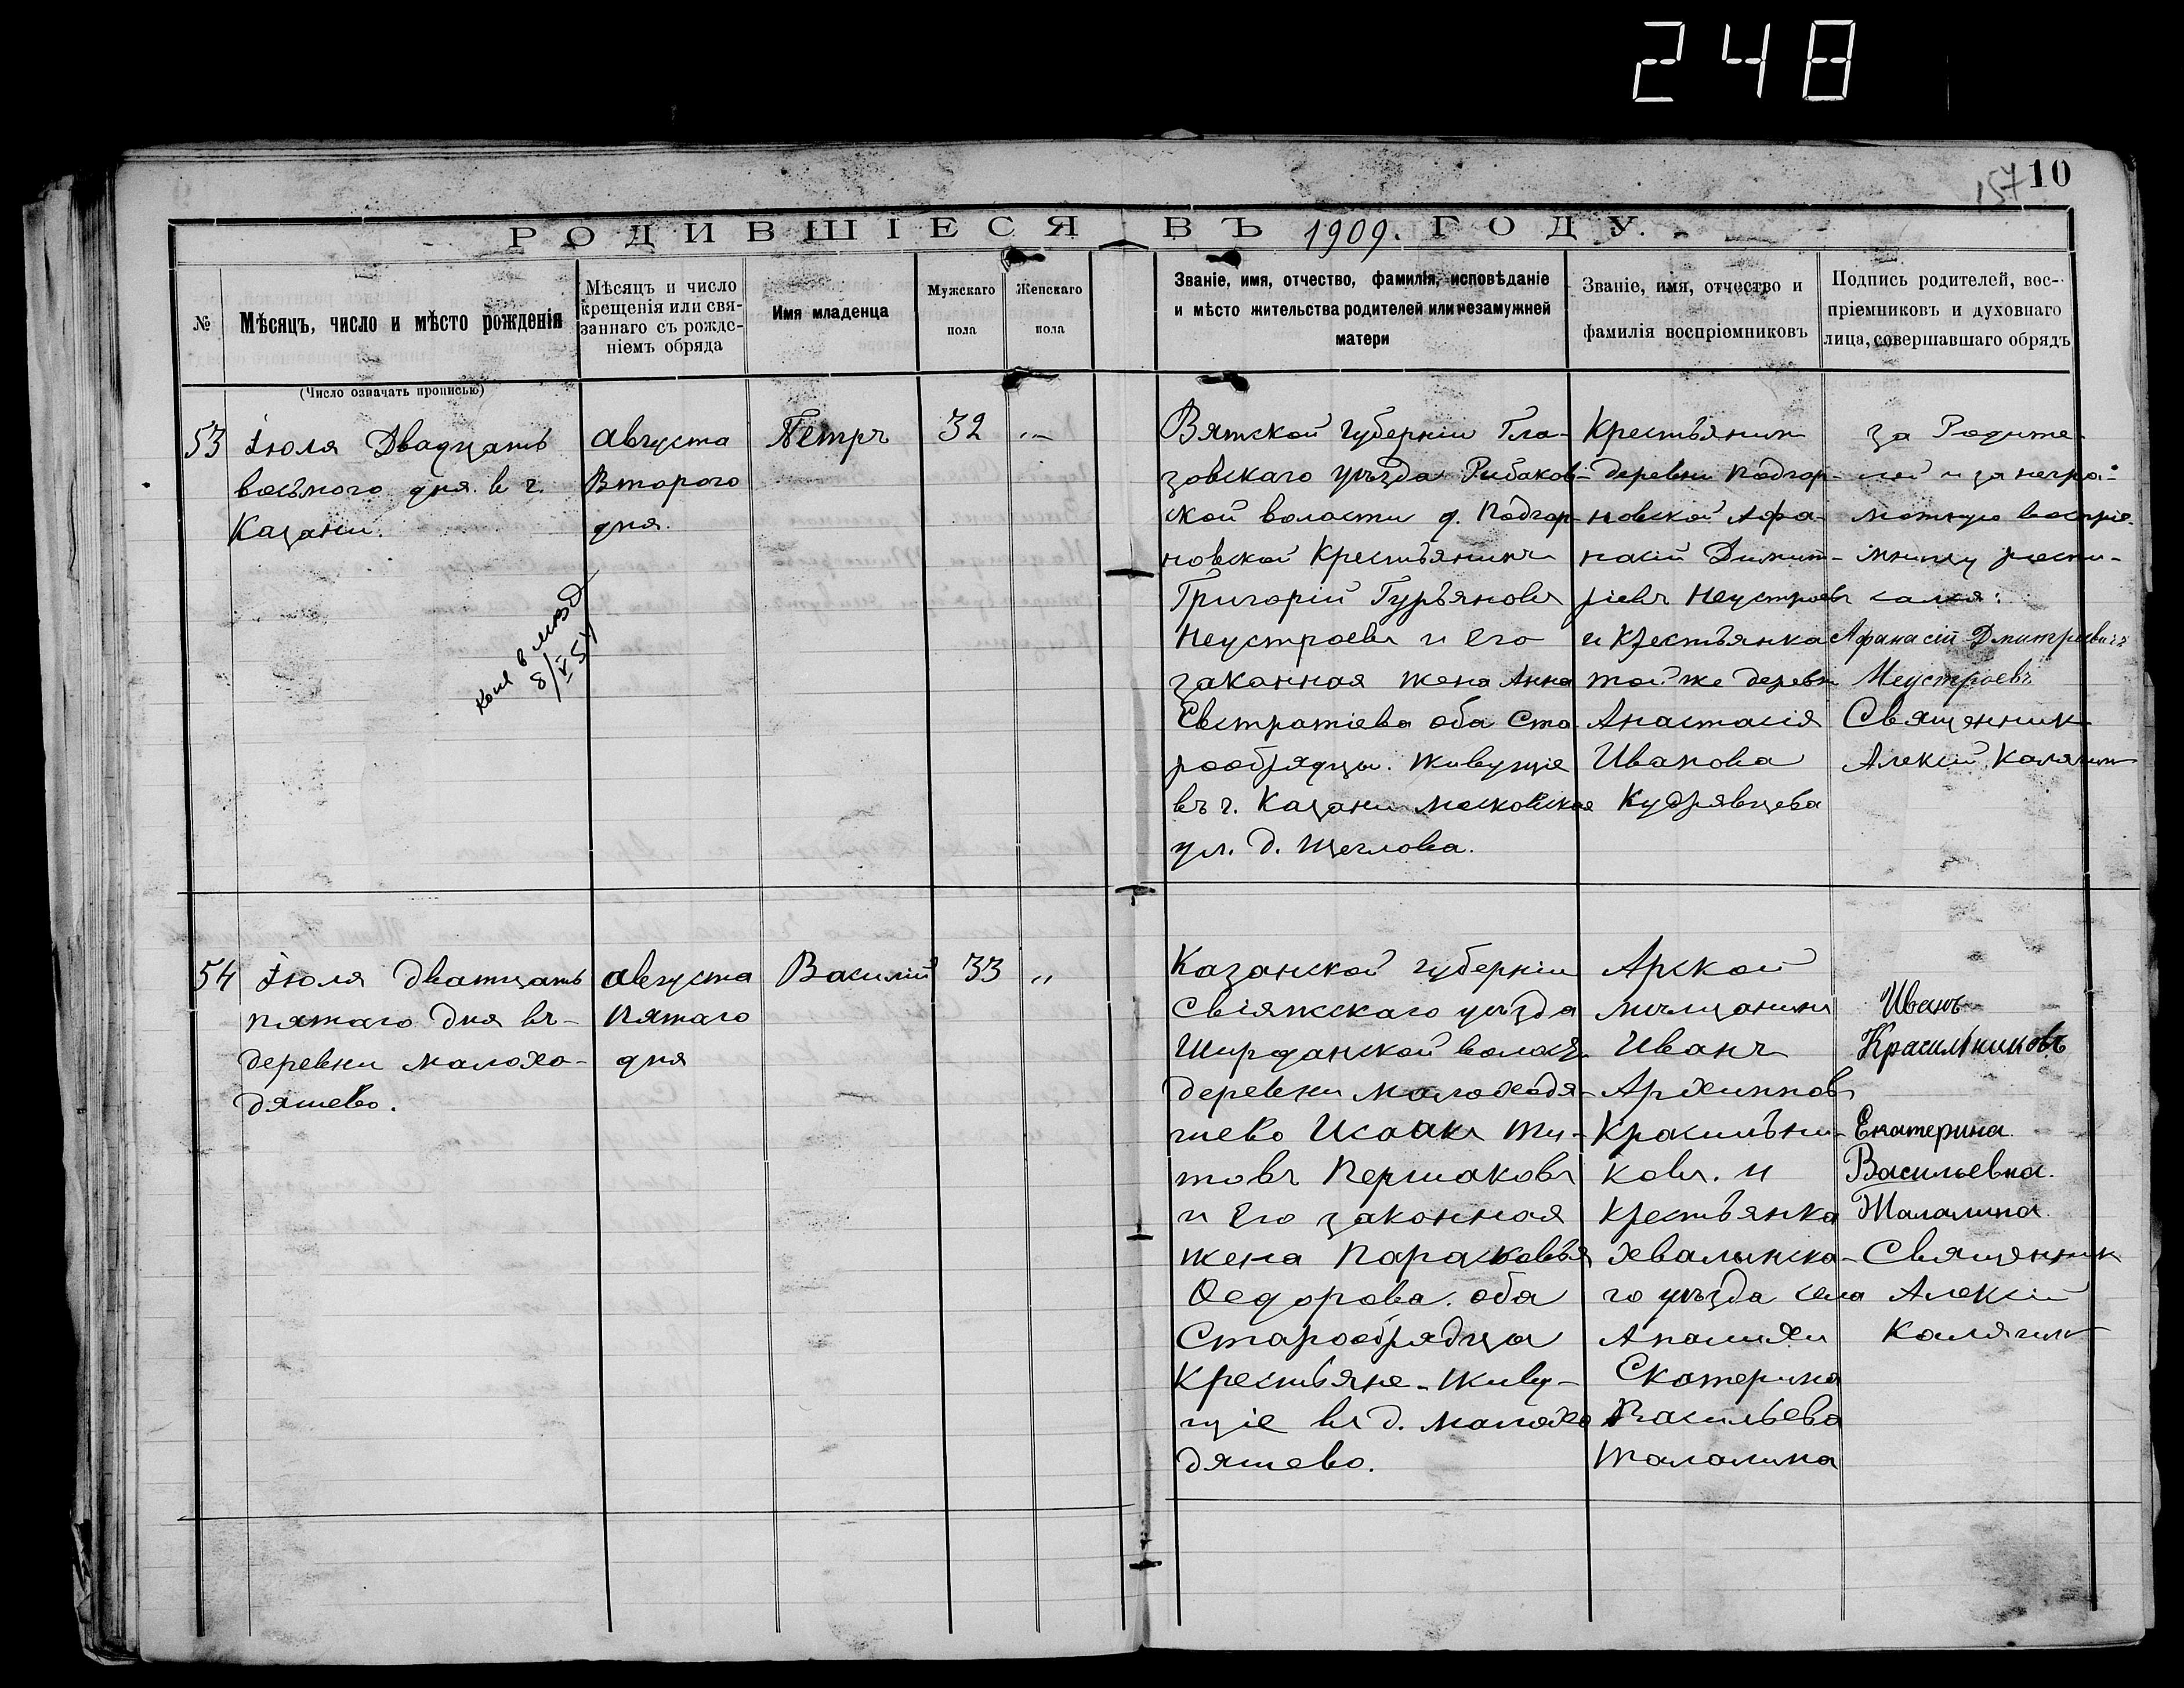 248
157 10
РОДИВШІЕСЯ ВЪ 1909. ГОДУ.
№
Мѣсяцъ, число и мѣсто рожденія
(Число означать прописью)
Мѣсяцъ и число
крещенія или свя-
заннаго съ рожде-
ніемъ обряда
Имя младенца
Мужскаго
пола
Женскаго
пола
Званіе, имя, отчество, фамилія, исповѣданіе
и мѣсто жительства родителей или незамужней
матери
Званіе, имя, отчество и
фамилія воспріемниковъ
Подпись родителей, вос-
пріемниковъ и духовнаго
лица, совершавшаго обрядъ
53
Іюля Двадцать
восьмого дня. в г.
Казани.
8/V 51
Августа
Второго
дня.
Петръ
32
"
Вятской Губерніи Гла-
зовскаго уѣзда Рибаков-
ской волости д. Подгор-
новской Крестьянинъ
Григорій Гурьяновъ
Неустроевъ и Его
законная жена Анна
Евстратіева оба Ста-
рообрядцы. живущіе
въ г. Казани московская
ул. д. Щеглова.
Крестьянин
деревни Подгор-
новской Афа-
насій Димит-
ріевъ Неустроевъ
и Крестьянка
той же деревн
Анастасія
Иванова
Кудрявцева
за Родите-
лей и за негра-
мотную воспріе-
мницу распи-
салса:
Афанасій Дмитриевичъ
Неустроевъ
Священник
Алексій Калягин
54
Іюля дватцать
пятаго дня въ-
деревни малохо-
дяшево.
Августа
Пятаго
дня
Василій
33
"
Казанской губерніи
Свіяжскаго уѣзда
Ширданской волост.
деревни малоходя-
шево Исаакъ Ти-
товъ Першаковъ
и Его законная
жена Парасковья
Ѳедорова. оба
Старообрядца
Крестьяне. живу-
щіе въ д. малохо
дяшево.
Арской
мѣщанинъ
Иванъ
Архиппов
Красильни-
ковъ. и
Крестьянка
хвалынска-
го уѣзда села
Апалихи
Екатерина
Васильева
Талалина
Иванъ
Красильниковъ
Екатерина
Васильевна.
Талалина.
Священник
Алексій
Калягин